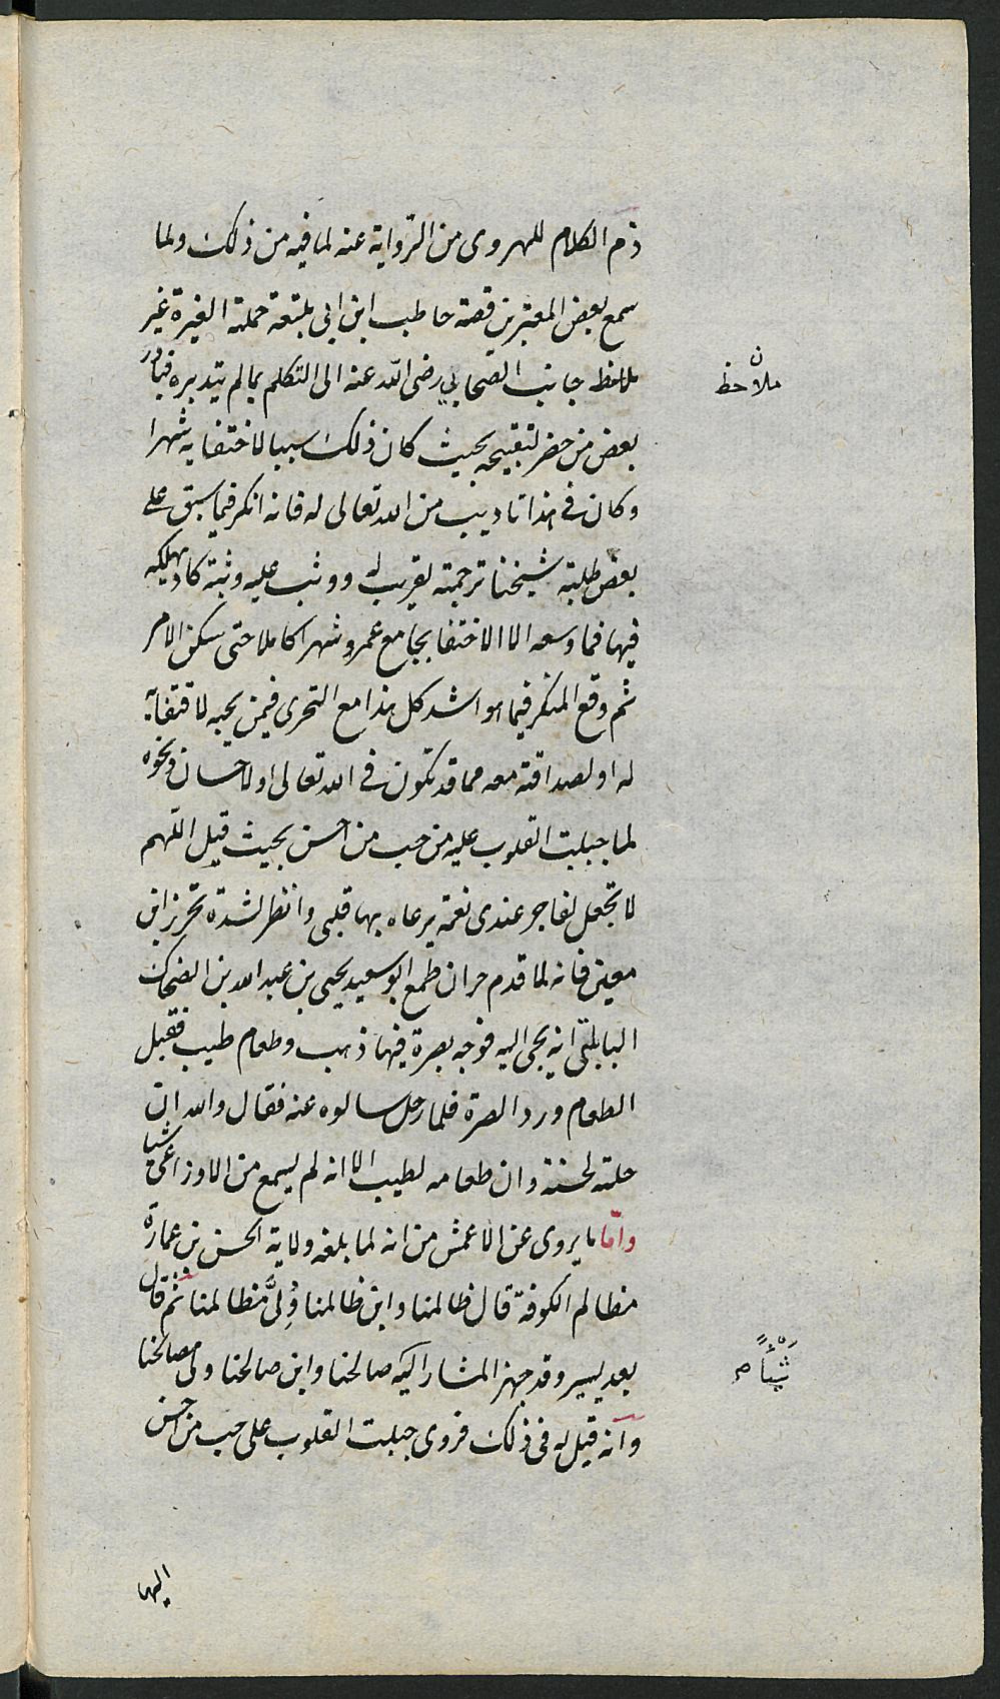 ذم الكلام للهروى من الرواية عنه لما فيه من ذلك ولما
سمع بعض المعتبرين قصة حاطب ابن ابي بلتعة حملته الغيرة غير
ملاحظ جانب الصحابي رضى الله عنه الى التكلم بما لم يتدبره فبادر
ملاحظ ن
بعض من حضر لتقبيحه بحيث كان ذلك سببا لاختفايه شهرا
وكان فى هذا تاديب من الله تعالى له فانه انكر فيما سبق على
بعض طلبته شيخنا ترجمته لقريب له ووثب عليه وثبة كاد يهلكه
فيها فما وسعه الا الاختفا بجامع عمرو شهرا كاملا حتى سكن الامر
ثم وقع المنكر فيما هو اشد كل هذا مع التحرى فيمن يحبه لاقتفائه
له او لصداقته معه مما قد تكون فى الله تعالى او لاحسان ونحوه
لما جبلت القلوب عليه من حب من احسن بحيث قيل اللهم
لا تجعل لفاجر عندى نعمة يرعاه بها قلبى وانظر لشدة تحرز ابن
معين فانه لما قدم حران طمع ابو سعيد يحيى بن عبد الله بن الضحاك
البابلتى انه يجى اليه فوجه بصرة فيها ذهب وطعام طيب فقبل
الطعام ورد الصرة فلما رحل سالوه عنه فقال والله ان
صلته لحسنة وان طعامه لطيب الا انه لم يسمع من الاوزاعى شيا
وامّا ما يروى عن الاعمش من انه لما بلغه ولاية الحسن بن عمارة
مظالم الكوفة قال ظالمنا وابن ظالمنا وُلِىَّ مظالمنا ثم قال
بعد يسير وقد جهز المشار اليه صالحنا وابن صالحنا ولى مصالحنا
شَيْئًا
وانه قيل له فى ذلك فروى جبلت القلوب على حب من احسن
اليها